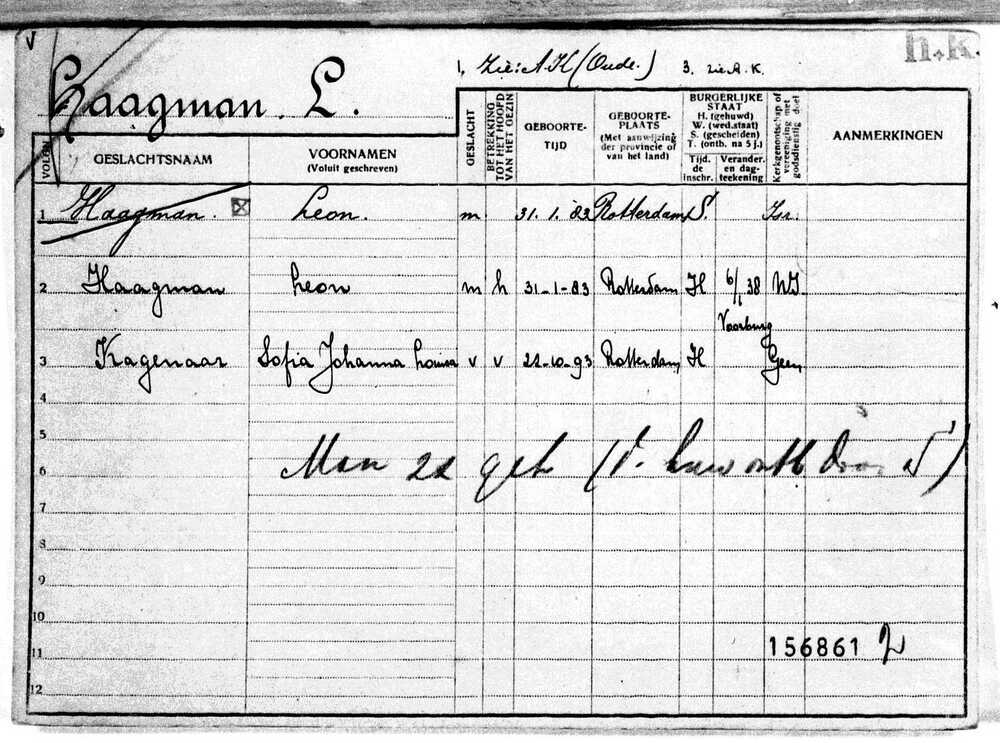 V
h.k.
1. zie: A.K (Oude.) 3. zie A.K.
Haagman. L.
VOLGN.
GESLACHTSNAAM
VOORNAMEN
(Voluit geschreven)
GESLACHT
BETREKKING
TOT HET HOOFD
VAN HET GEZIN
GEBOORTE-
TIJD
GEBOORTE-
PLAATS
(Met aanwijzing
der provincie of
van het land)
BURGERLIJKE
STAAT
H. (gehuwd)
W. (wed.staat)
S. (gescheiden)
T. (ontb. na 5 j.)
Tijd.
de
inschr.
Verander.
en dag-
teekening
Kerkgenootschap of
vereeniging met
godsdienstig doel
AANMERKINGEN
1 Haagman. Leon. m 31. 1. 83 Rotterdam S. Isr.
2 Haagman Leon m h 31-1-83 Rotterdam H 6/1 38 NI
Voorburg
3 Kagenaar Sofia Johanna Louisa v v 22-10-93 Rotterdam H Geen
4
5
6 Man 2x geh (1e huw ontb door S)
7
8
9
10
11 156861
12